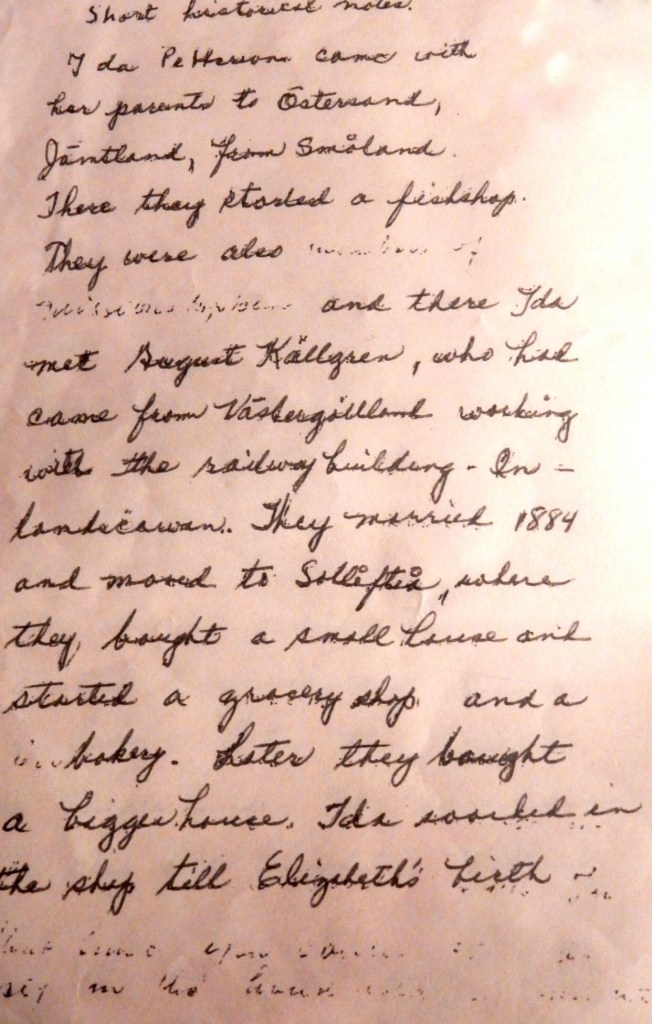 Short historical notes.
Ida Petterson came with
her parents to Östersand,
Jämtland, from Småland.
There they started a fishshop.
They were also members of
and there Ida
met August Källgren, who had
came from Västergöttland working
with the railway building - In -
landsbanan. They married 1884
and moved to Sollefteå, where
they bought a small house and
started a grocery shop and a
bakery. Later they bought
a bigger house. Ida worked in
the shop till Elizabeth's birth